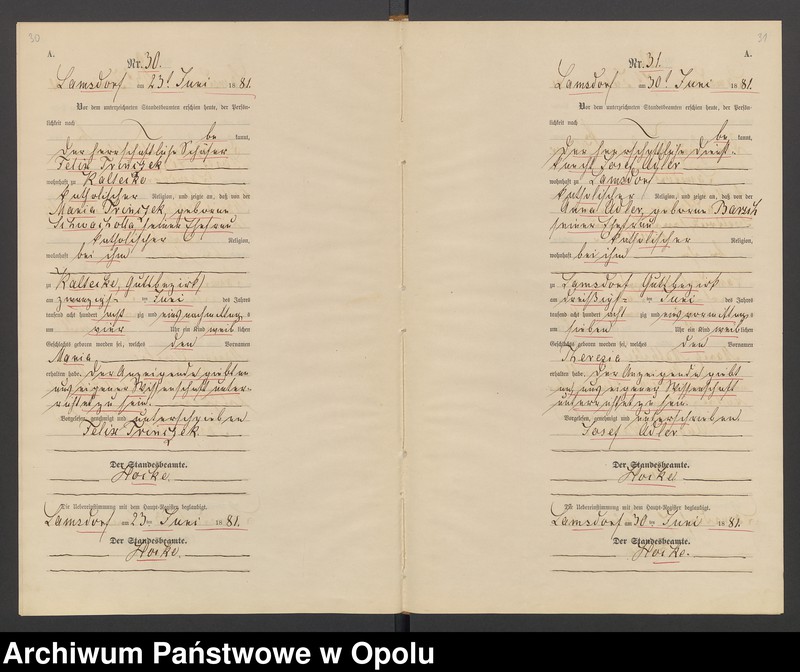 30
A.
Nr. 30.
Lamsdorf am 23t. Juni 1881.
Vor dem unterzeichneten Standesbeamten erschien heute, der Persön-
lichkeit nach
be kannt,
der herrschaftliche Schäfer
Felix Trinczek
wohnhaft zu Kaltecke
katholischer Religion, und zeigte an, daß von der
Maria Trinczek, geborne
seiner Ehefrau
katholischer Religion,
wohnhaft bei ihm
zu Kaltecke, Gutsbezirk
am Juni des Jahres
tausend acht hundert acht zig und eins nachmittags
um vier Uhr ein Kind weiblichen
Geschlechts geboren worden sei, welches den Vornamen
Maria
erhalten habe. Der Anzeigende giebt an
aus eigener Wissenschaft unter-
richtet zu sein.
Vorgelesen, genehmigt und unterschrieben
Felix Trinczek
Der Standesbeamte.
Hocke.
Die Uebereinstimmung mit dem Haupt-Register beglaubigt.
Lamsdorf am 23ten Juni 1881.
Der Standesbeamte.
Hocke.
31
A.
Nr. 31.
Lamsdorf am 30t. Juni 1881.
Vor dem unterzeichneten Standesbeamten erschien heute, der Persön-
lichkeit nach
be kannt,
der herrschaftliche Dienst-
knecht Josef Adler
wohnhaft zu Lamsdorf
katholischer Religion, und zeigte an, daß von der
Anna Adler, geborne
seiner Ehefrau
katholischer Religion,
wohnhaft bei ihm
zu Lamsdorf Gutsbezirk
am dreißigs- ten Juni des Jahres
tausend acht hundert acht zig und eins vormittags
um sieben Uhr ein Kind weiblichen
Geschlechts geboren worden sei, welches den Vornamen
Theresia
erhalten habe. Der Anzeigende giebt
an aus eigener Wissenschaft
unterrichtet zu sein.
Vorgelesen, genehmigt und unterschrieben
Josef Adler
Der Standesbeamte.
Hocke
Die Uebereinstimmung mit dem Haupt-Register beglaubigt.
Lamsdorf am 30ten Juni 1881.
Der Standesbeamte.
Hocke.
Archiwum Państwowe w Opolu